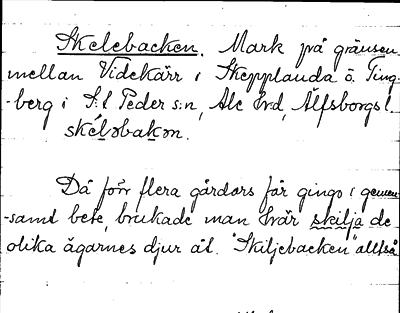 Skelebacken. Mark på gränsen
mellan Videkärr i Skepplanda o. Ting-
-berg i S:t Peder s:n, Ale hrd, Älfsborgs l.
skéləbakən.
Då förr flera gårdars får gingo i gemen-
-samt bete, brukade man här skilja de
olika ägarnes djur åt. "Skiljebacken" alltså